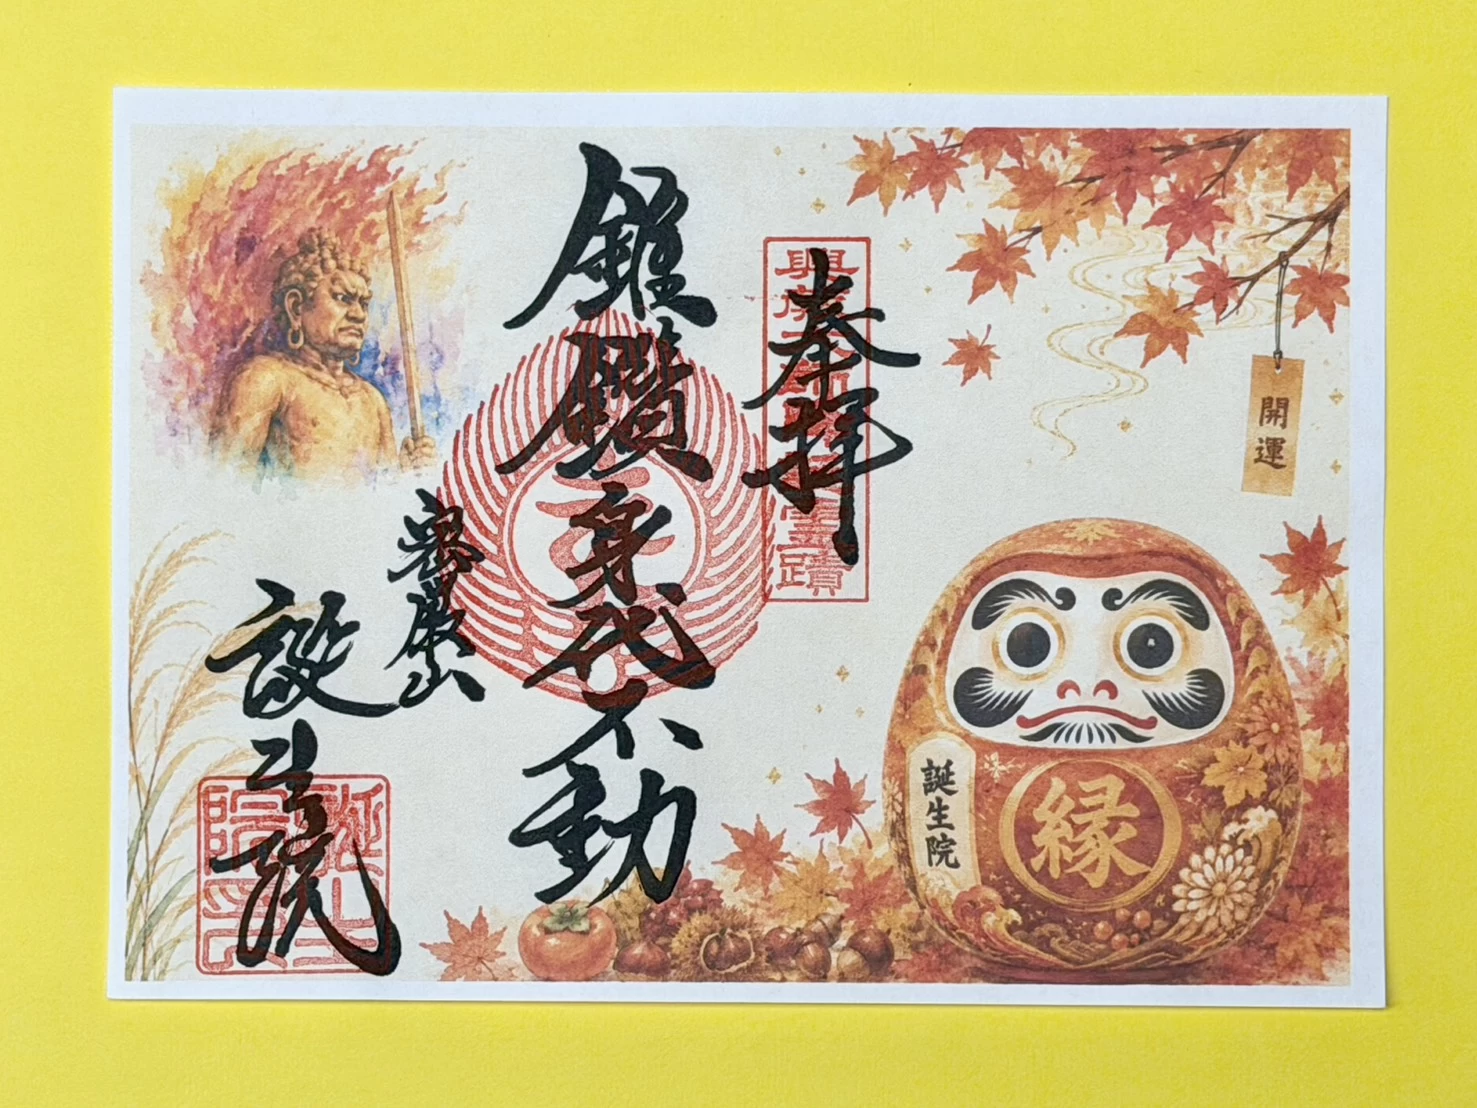 奉拝
錐鑽身代不動
密厳山
誕生院
開運
誕生院
縁